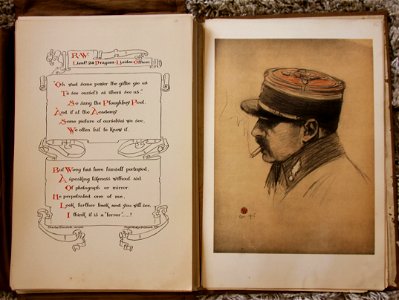 R. W.
Lieut 28 Dragons - Liaison Officer
"Oh wad some power the giftie gie us
To see oursel's as others see us."
So sang the Ploughboy Poet.
And if at the Academy
Some picture of ourselves we see,
We often fail to know it.
But Wong has here himself portrayed,
A speaking likeness without aid
Of photograph or mirror.
He perpetrated one of me,
Look further back and you will see,
I think it is a 'terror'.....!